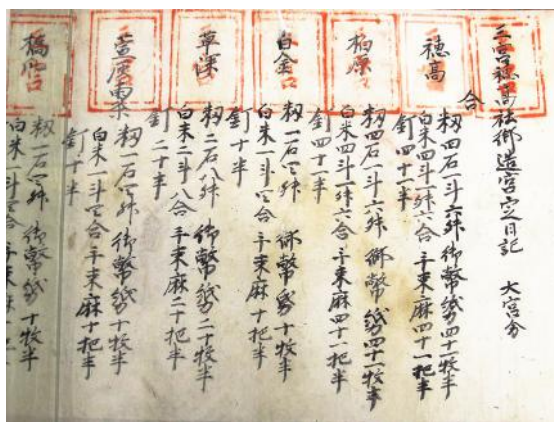 三宮穂高社御造宮定日記 大宮分
合
穂高
籾四石一斗六舛 御幣紙四十一牧半
白米四斗一舛六合 手束麻四十一把半
釘四十一半
柏原
籾四石一斗六舛 御幣紙四十一牧半
白米四斗一舛六合 手束麻四十一把半
釘四十一半
白金
籾一石四舛 御幣紙十牧半
白米一斗四合 手束麻十把半
釘十半
草深
籾二石八舛 御幣紙二十牧半
白米二斗八合 手束麻二十把半
釘二十半
籾一石四舛 御幣紙十牧半
白米一斗四合 手束麻十把半
釘十半
籾一石四舛 御幣紙十牧半
白米一斗四合 手束麻十把